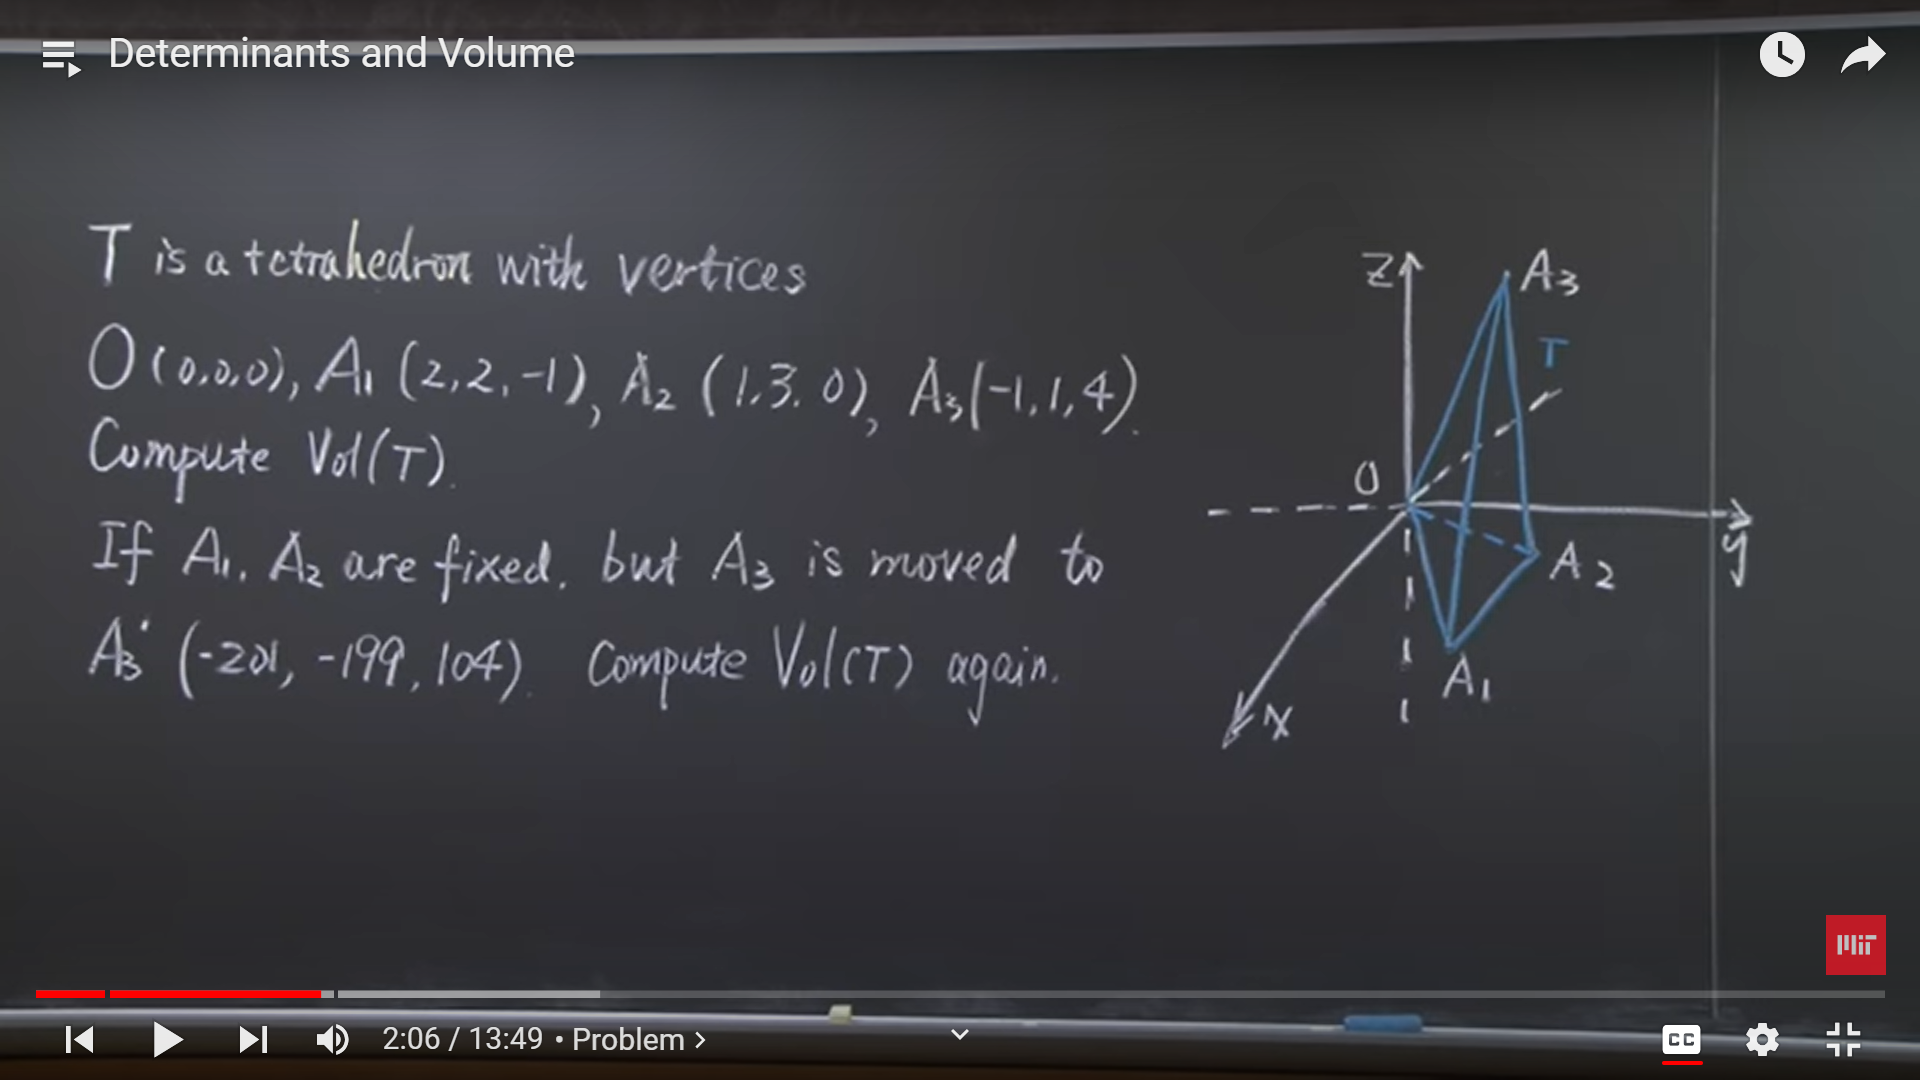 Determinants and Volume
T is a tetrahedron with vertices
O (0,0,0), A₁ (2,2,-1), A₂ (1,3,0), A₃ (-1,1,4).
Compute Vol(T).
If A₁, A₂ are fixed, but A₃ is moved to
A₃' (-201, -199, 104). Compute Vol(T) again.
Z
A₃
T
O
y
A₂
A₁
x
MIT
2:06 / 13:49 • Problem >
CC